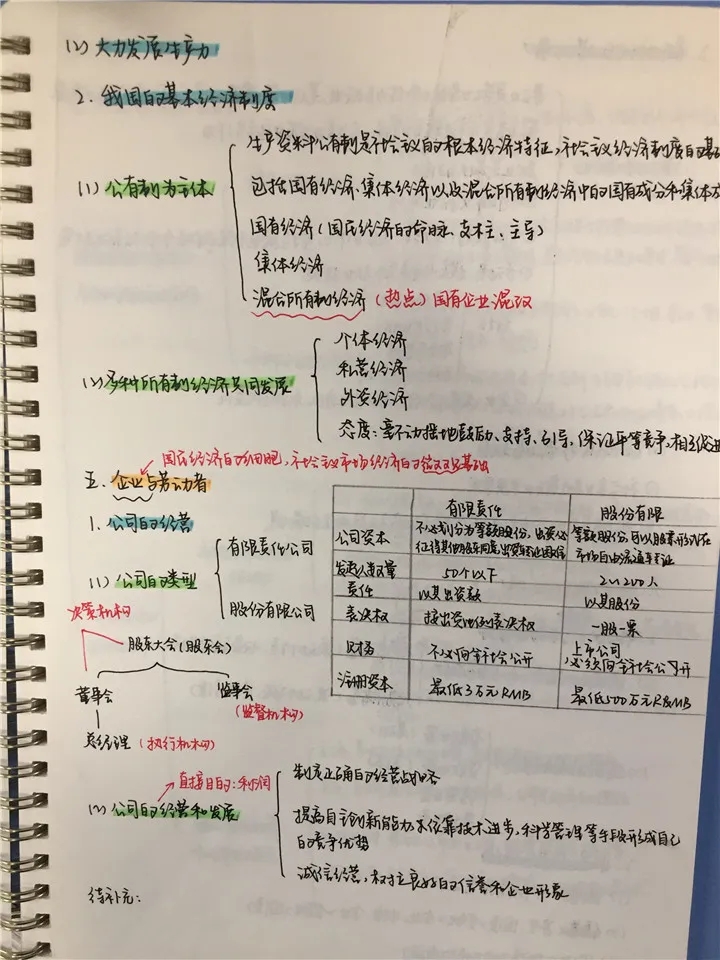 (2) 大力发展生产力
2. 我国的基本经济制度
生产资料公有制是社会主义的根本经济特征,社会主义经济制度的基
(1) 公有制为主体
包括国有经济、集体经济以及混合所有制经济中的国有成分和集体成
国有经济(国民经济的命脉、支柱、主导)
集体经济
混合所有制经济(热点)国有企业混改
个体经济
私营经济
(2) 多种所有制经济共同发展
外资经济
态度:毫不动摇地鼓励、支持、引导,保证平等竞争,相互促进
国民经济的细胞,社会主义市场经济的微观基础
五. 企业与劳动者
1. 公司的经营
(1) 公司的类型
有限责任公司
股份有限公司
有限责任 股份有限
公司资本 不必划分为等额股份,出资必征得其他股东同意,出资 等额股份,可以股票形式在市场自由流通
发起人数量 50个以下 2~200人
责任 以其出资额 以其股份
表决权 按出资比例表决权 一股一票
财务 不必向全社会公开 上市公司必须向全社会公开
注册资本 最低3万元RMB 最低500万元RMB
决策机构
股东大会(股东会)
董事会 监事会
(监督机构)
总经理(执行机构)
直接目的:利润
制定正确的经营战略
(2) 公司的经营和发展
提高自主创新能力,依靠技术进步,科学管理等手段形成自己
的竞争优势
诚信经营,树立良好的信誉和企业形象
待补充: